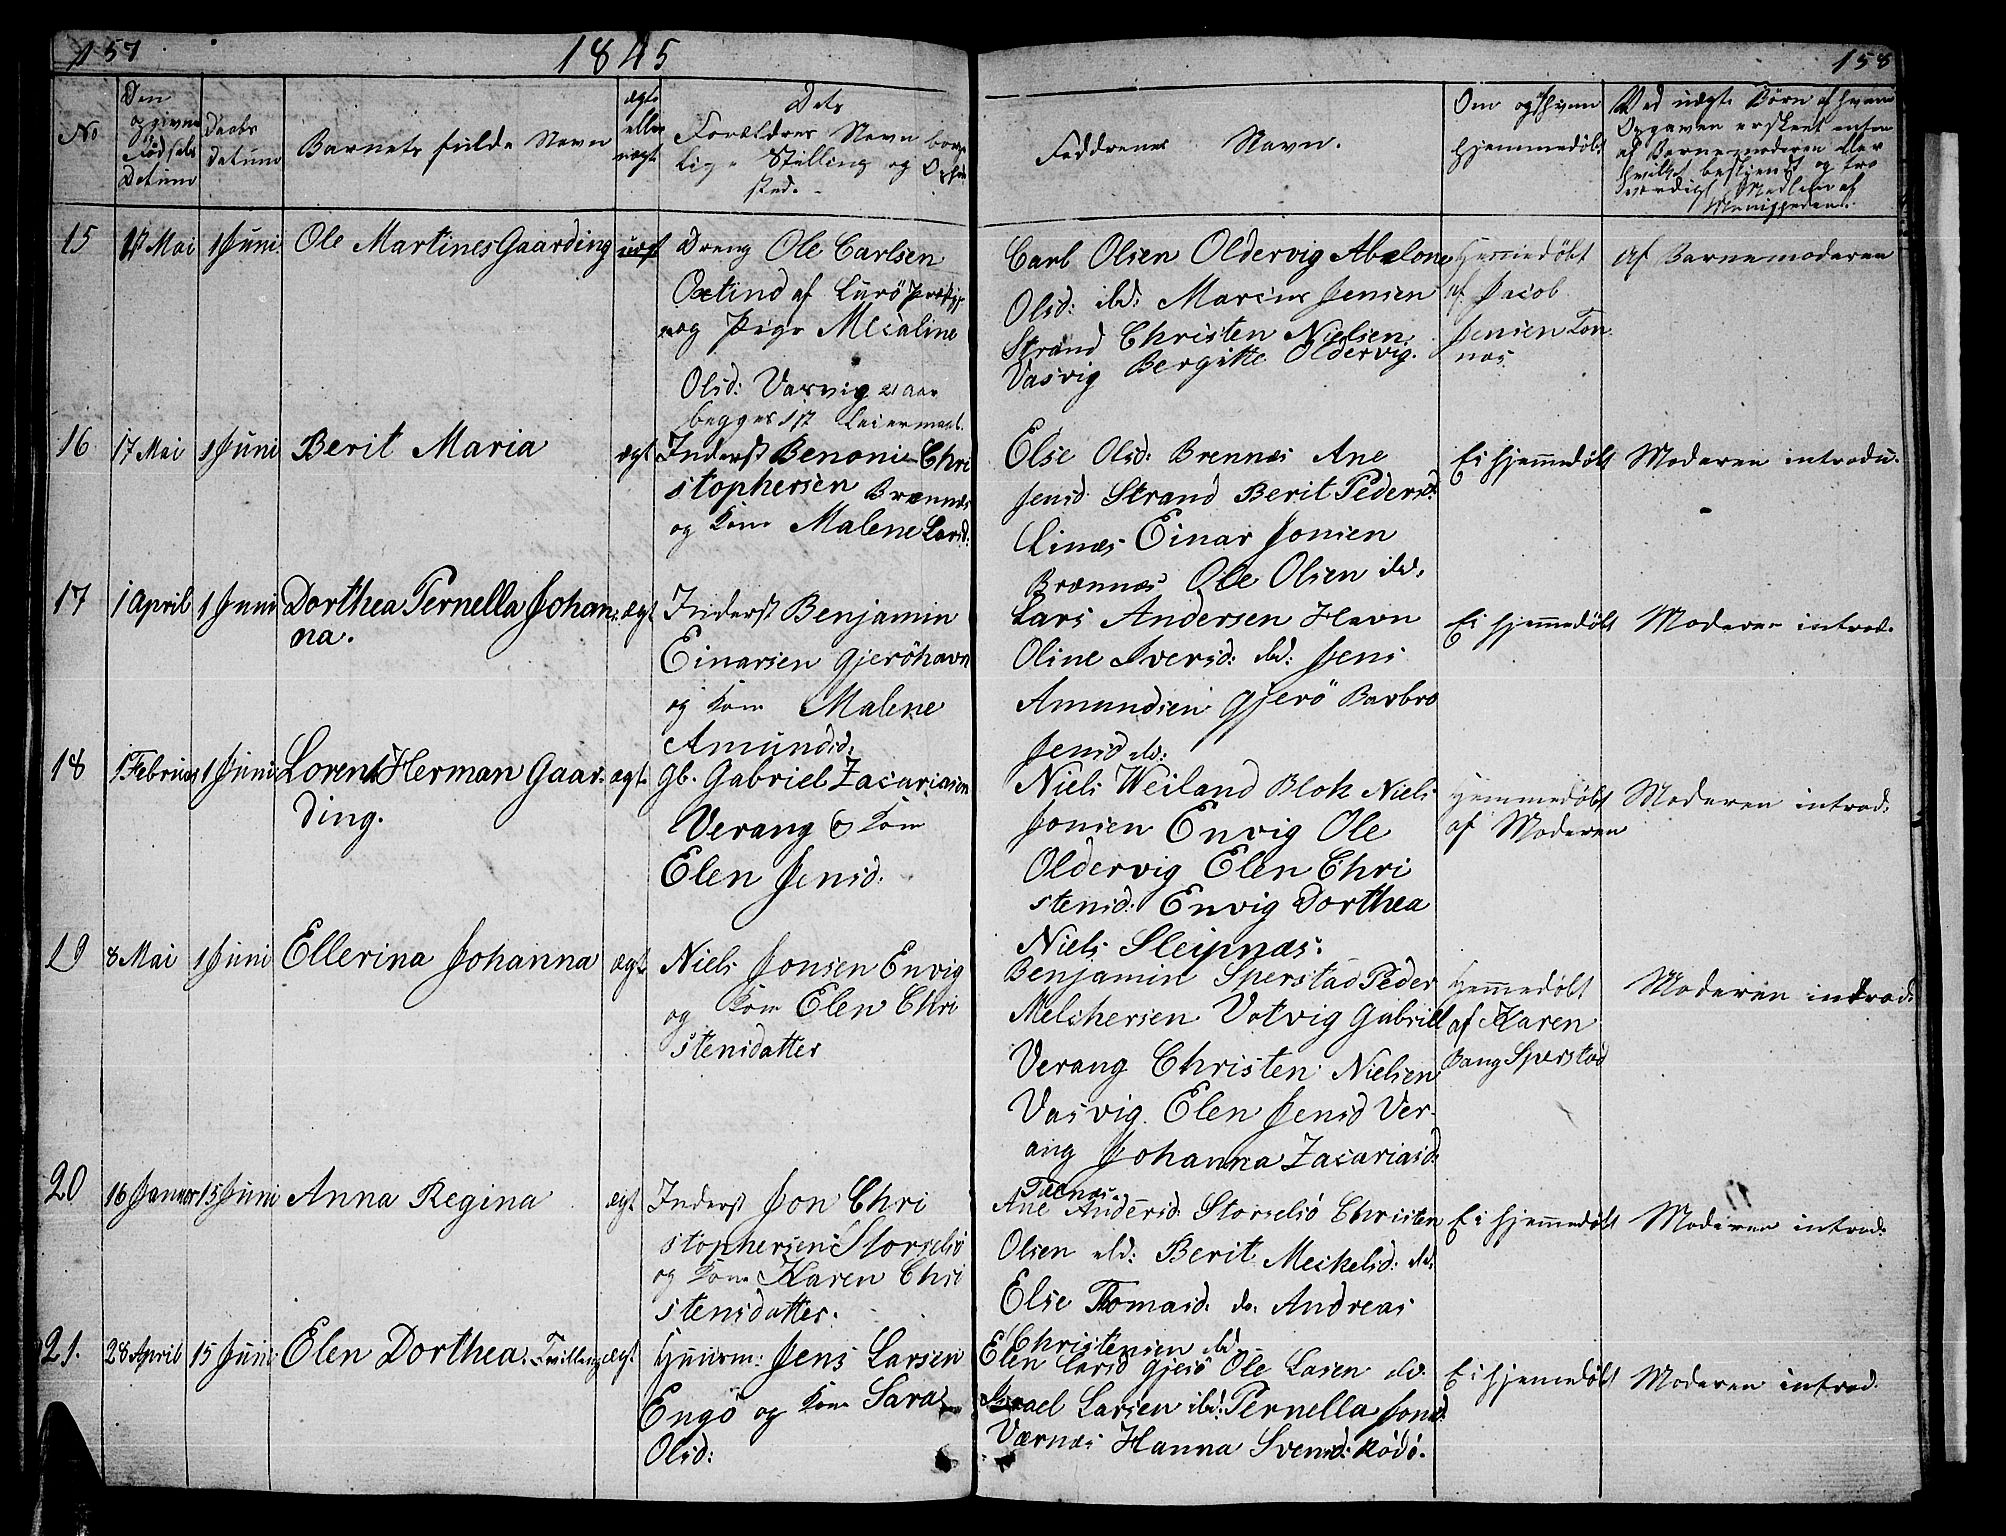 157
1845
158
No
Den opgivne Fødsels Datum
Daabs datum
Barnets fulde Navn
ægte eller uægte
Dets Forældres Navn borgerlige Stilling og Opholdsted.
Faddernes Navn.
Om og af hvem hjemmedøbt
Ved uægte Børn af hvem Opgaven er skeet enten af Barnemoderen eller hvilket bekjendt og troværdigt Medlem af Menigheden.
15
17 Mai
1 Juni
Ole Martines Gaarding
uægt
Dreng Ole Carlsen
Oxtind af Lurö
og Pige Mecaline
Olsd: Vasvig 21 aar
begges 1ste Leiermaal.
Carl Olsen Oldervig Abelone
Olsd: ibd: Marcius Jensen
Strand Christen Nielsen
Vasvig Bergitte Oldervig.
Hjemedøbt
af Jacob
Jensen Ton
næs
Af Barnemoderen
16
17 Mai
1 Juni
Berit Maria
ægt
Inderst Benoni Chri
stophersen Brennæs
og Kone Malene Larsd:
Else Olsd: Brennæs Ane
Jensd Strand Berit Pedersd:
Linæs Einar Jonsen
Brænnæs Ole Olsen ibd.
Ei hjemmedøbt
Moderen introdu.
17
1 April
1 Juni
Dorthea Pernella Johan
na.
ægt
Inderst Benjamin
Einarsen Gjeröhavn
og Kone Malene
Amundsd.
Lars Andersen Havn
Oline Iversd: ibd: Jens
Amundsen Gjerö Barbro
Jensd ibd:
Ei hjemmedøbt
Moderen introd.
18
1 Februar
1 Juni
Lorent Herman Gaar-
ding.
ægt
Gb. Gabriel Zacariasen
Verang & Kone
Elen Jensd.
Niels Weiland Blok Niels
Jonsen Envig Ole
Oldervig Elen Chri
stensd: Envig Dorthea
Niels Sleipnæs:
Hjemmedøbt
af Moderen
Moderen introd:
19
8 Mai
1 Juni
Ellerina Johanna
ægt
Niels Jonsen Envig
og Kone Elen Chri
stensdatter
Benjamin Sperstad Peder
Melchersen Votvig Gabriel
Verang Christen Nielsen
Vasvig. Elen Jensd Ver-
ang Johanna Zacariasd:
Hjemmedøbt
af Karen
Bang Sperstad
Moderen introd:
20
16 Januar
15 Juni
Anna Regina
ægt
Inderst Jon Chri
stophersen Storselsö
og Kone Karen Chri
stensdatter.
Ane Andersd. Storselsö Christen
Olsen ibd: Berit Meckelsd: ibd:
Else Tomasd. do. Andreas
Christensen ibd.
Ei hjemmedøbt
Moderen introd:
21.
28 April
15 Juni
Elen Dorthea. Tvilling
ægt
Huusm: Jens Larsen
Engö og Kone Sara
Olsd:
Elen Larsd Gjesö Ole Lasen ibd.
Israel Larsen ibd: Pernella Jonsd:
Værnæs Hanna Svensd: Rödö.
Ei hjemmedøbt
Moderen introd.